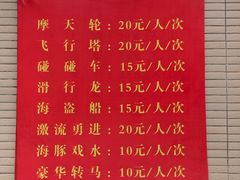 摩天轮：20元/人/次
飞行塔：20元/人/次
碰碰车：15元/人/次
滑行龙：15元/人/次
海盗船：15元/人/次
激流勇进：20元/人/次
海豚戏水：10元/人/次
豪华转马：10元/人/次